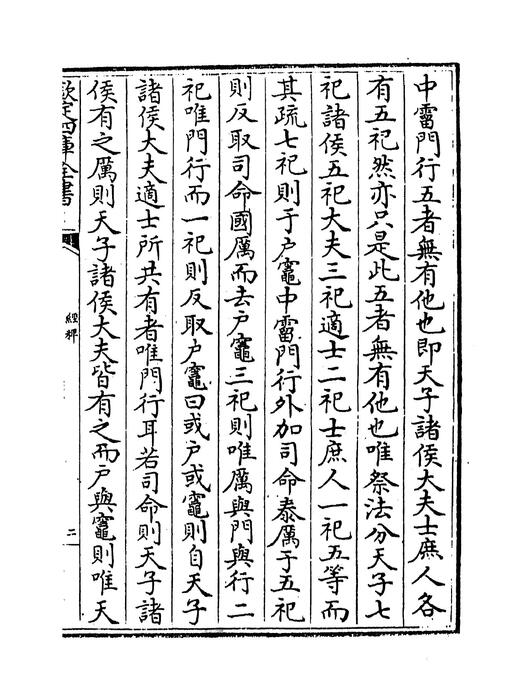 中霤門行五者無有他也即天子諸侯大夫士庶人各
有五祀然亦只是此五者無有他也唯祭法分天子七
祀諸侯五祀大夫三祀適士二祀士庶人一祀五等而
其疏七祀則于戶竈中霤門行外加司命泰厲于五祀
則反取司命國厲而去戶竈三祀則唯厲與門與行二
祀唯門行而一祀則反取戶竈曰或戶或竈則自天子
諸侯大夫適士所共有者唯門行耳若司命則天子諸
侯有之厲則天子諸侯大夫皆有之而戶與竈則唯天
欽定四庫全書
經稗
二